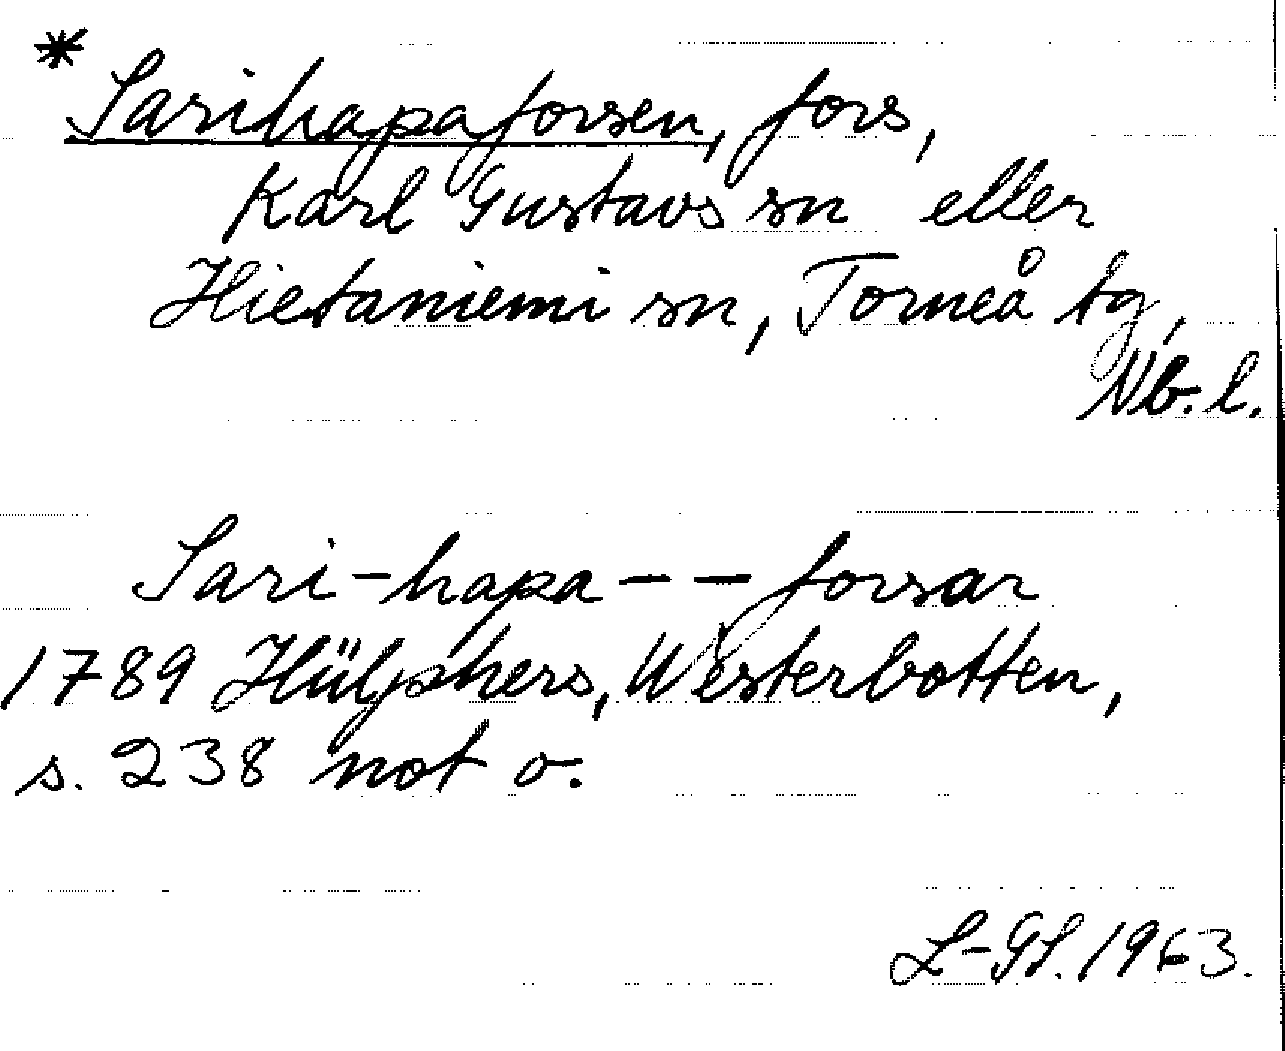 * Sarihapaforsen, fors,
Karl Gustavs sn eller
Hietaniemi sn, Torneå tg,
Nb. l.
Sari-hapa -- forsar
1789 Hülphers, Westerbotten,
s. 238 not o.
L-GL. 1963.